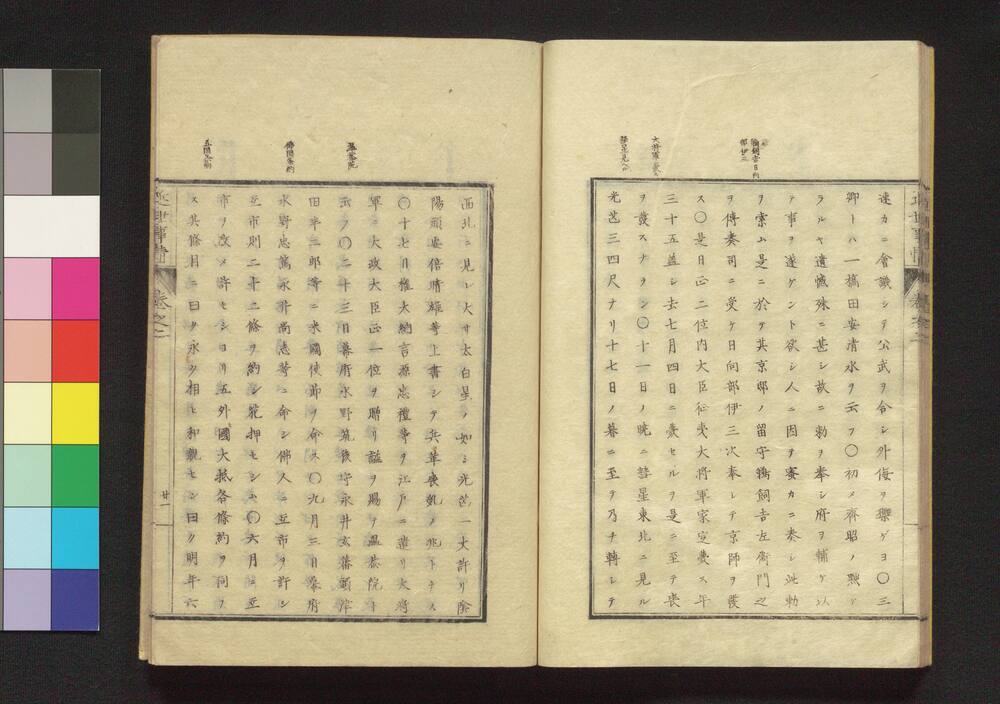 速カニ會議シテ公武ヲ合シ外侮ヲ禦ゲヨ〇三
卿トハ一橋田安清水ヲ云フ〇初メ齊昭ノ黙
ラルヽヤ遺憾殊ニ甚シ故ニ勅ヲ奉シ府ヲ輔ケ以
テ事ヲ遂ケント欲シ人ニ因テ蜜カニ奏シ此勅
ヲ索ム是ニ於テ其京邸ノ留守鵜飼吉左衛門之
ヲ傳奏司ニ受ケ日向部伊三次奉シテ京師ヲ發
ス〇是日正二位内大臣征夷大将軍家定薨ス年
三十五蓋シ去七月四日ニ薨セルヲ是ニ至テ喪
ヲ發スナラン〇十一日ノ曉ニ彗星東北ニ見ル
光芒三四尺ナリ十七日ノ暮ニ至テ乃チ轉シテ
近世事情
巻之二
西北ニ見レ大サ太白星ノ如シ光芒一丈許リ陰
陽頭安倍晴雄等上書シテ兵革疾乱ノ兆トナス
〇十七日權大納言源忠禮等ヲ江戸ニ遣リ大将
軍ニ太政大臣正一位ヲ贈リ諡ヲ賜テ温恭院ト
云フ〇二十三日幕府水野筑後守永井玄蕃頭津
田半三郎等ニ米國使節ヲ命ス〇九月三日幕府
水野忠篤永井尚志等ニ命シ佛人ニ互市ヲ許シ
互市則二十二條ヲ約シ花押セシム〇六月
市ヲ改メ許セシヨリ五外國大抵各條約ヲ同フ
ス其條目ニ曰ク永ク相ヒ和親セン曰ク明年六
近世事情
巻之二
廿一